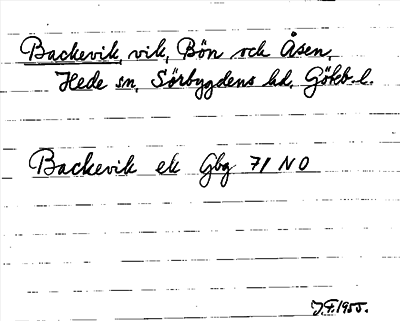 Backevik, vik, Bön och Åsen,
Hede sn, Sörbygdens hd, Gökb. l.
Backevik ek Gbg 71 NO
J.F. 1955.